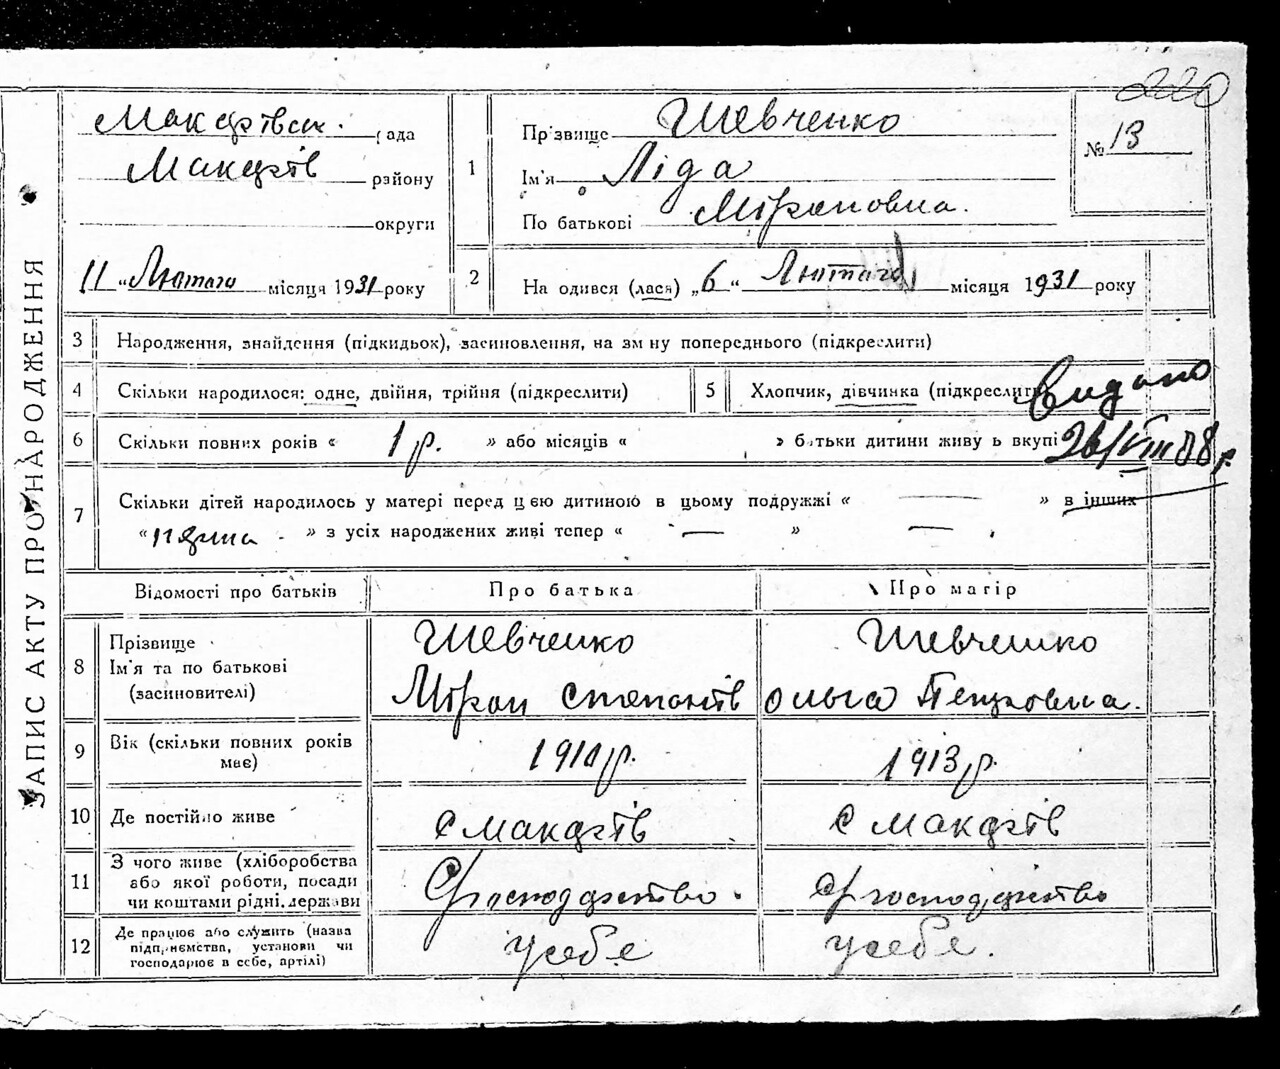 220
Макарівськ. рада
Макарів району
округи
"11" Лютого місяця 1931 року
1
Прізвище Шевченко
Ім'я Ліда
По батькові Міроновна.
№ 13
2
На одився (лася) „6" Лютого місяця 1931 року
ЗАПИС АКТУ ПРО НАРОДЖЕННЯ
3 Народження, знайдення (підкидьок), засиновлення, на зм ну попереднього (підкреслити)
4 Скільки народилося: одне, двійня, трійня (підкреслити)
5 Хлопчик, дівчинка (підкреслити)
Видано
26/VIII 88 р.
6 Скільки повних років « 1 р. » або місяців « » батьки дитини живу ь вкупі
7 Скільки дітей народилось у матері перед цею дитиною в цьому подружжі « — » в інших
« » з усіх народжених живі тепер « — » —
Відомості про батьків Про батька Про матір
8 Прізвище
Ім'я та по батькові
(засиновителі)
Шевченко
Мірон Степанів
Шевченко
Ольга Петровна.
9 Вік (скільки повних років
має)
1911 р.
1913 р.
10 Де постійно живе
с Макарів
с Макарів
11 З чого живе (хліборобства
або якої роботи, посади
чи коштами рідні, держави
С/господарство.
С/господарство
12 Де працює або служить (назва
підприємства, установи чи
господарює в себе, артілі)
у себе
у себе.